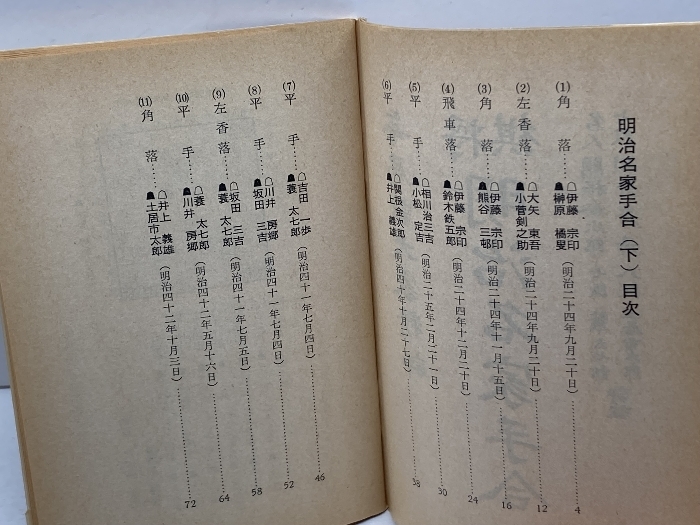 明治名家手合（下）目次
(1) 角落……☖伊藤 宗印 ☗榊原 橘叟（明治二十四年九月二十日）……4
(2) 左香落……☖大矢 東吾 ☗小菅剣之助（明治二十四年九月二十日）……12
(3) 角落……☖伊藤 宗印 ☗熊谷 三邨（明治二十四年十一月十五日）……16
(4) 飛車落……☖伊藤 宗印 ☗鈴木鉄五郎（明治二十四年十二月二十日）……24
(5) 平手……☖相川治三吉 ☗小松 定吉（明治二十五年二月二十一日）……30
(6) 平手……☖関根金次郎 ☗井上 義雄（明治四十年十月二十七日）……38
(7) 平手……☖吉田 一歩 ☗蓑 太七郎（明治四十一年七月四日）……46
(8) 平手……☖川井 房郷 ☗坂田 三吉（明治四十一年七月四日）……52
(9) 左香落……☖坂田 三吉 ☗蓑 太七郎（明治四十一年七月五日）……58
(10) 平手……☖蓑 太七郎 ☗川井 房郷（明治四十二年五月十六日）……64
(11) 角落……☖井上 義雄 ☗土居市太郎（明治四十二年十月三日）……72